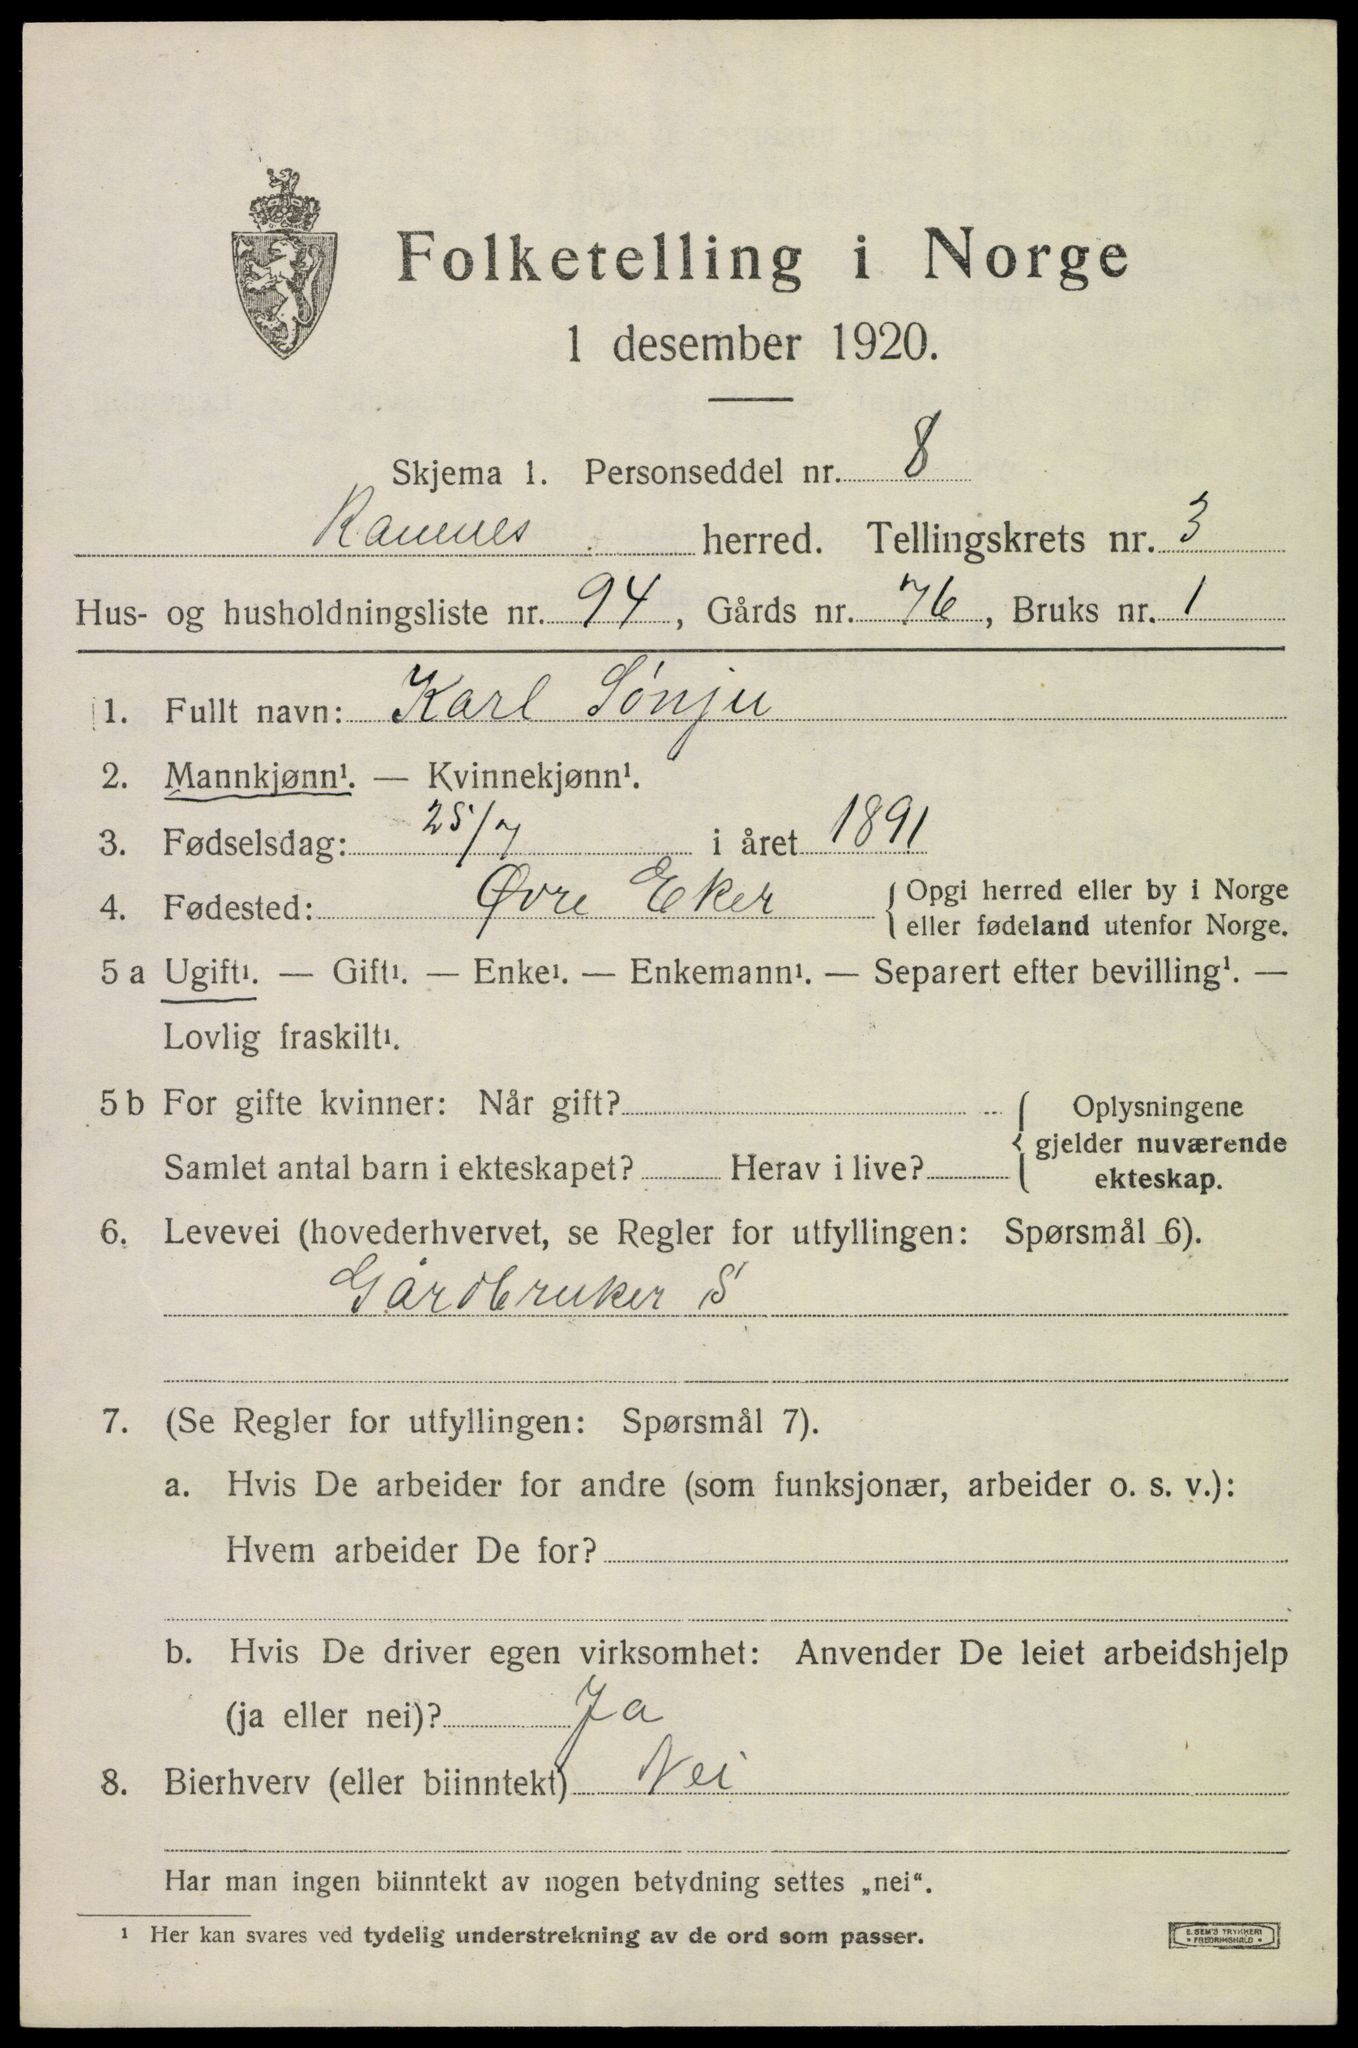 Folketelling i Norge
1 desember 1920.
Skjema 1. Personseddel nr. 8
Ramnes herred. Tellingskrets nr. 3
Hus- og husholdningsliste nr. 94, Gårds nr. 76, Bruks nr. 1
1. Fullt navn: Karl Sønju
2. Mannkjønn¹. — Kvinnekjønn¹.
3. Fødselsdag: 25/7 i året 1891
4. Fødested: Øvre Eker { Opgi herred eller by i Norge
eller fødeland utenfor Norge.
5 a Ugift¹. — Gift¹. — Enke¹. — Enkemann¹. — Separert efter bevilling¹. —
Lovlig fraskilt¹.
5 b For gifte kvinner: Når gift? { Oplysningene
gjelder nuværende
Samlet antal barn i ekteskapet? Herav i live? ekteskap.
6. Levevei (hovederhvervet, se Regler for utfyllingen: Spørsmål 6).
Gårdbruker S
7. (Se Regler for utfyllingen: Spørsmål 7).
a. Hvis De arbeider for andre (som funksjonær, arbeider o. s. v.):
Hvem arbeider De for?
b. Hvis De driver egen virksomhet: Anvender De leiet arbeidshjelp
(ja eller nei)? Ja
8. Bierhverv (eller biinntekt) Nei
Har man ingen biinntekt av nogen betydning settes „nei“.
¹ Her kan svares ved tydelig understrekning av de ord som passer.
E. SEM'S TRYKKERI
• FREDRIKSHALD •